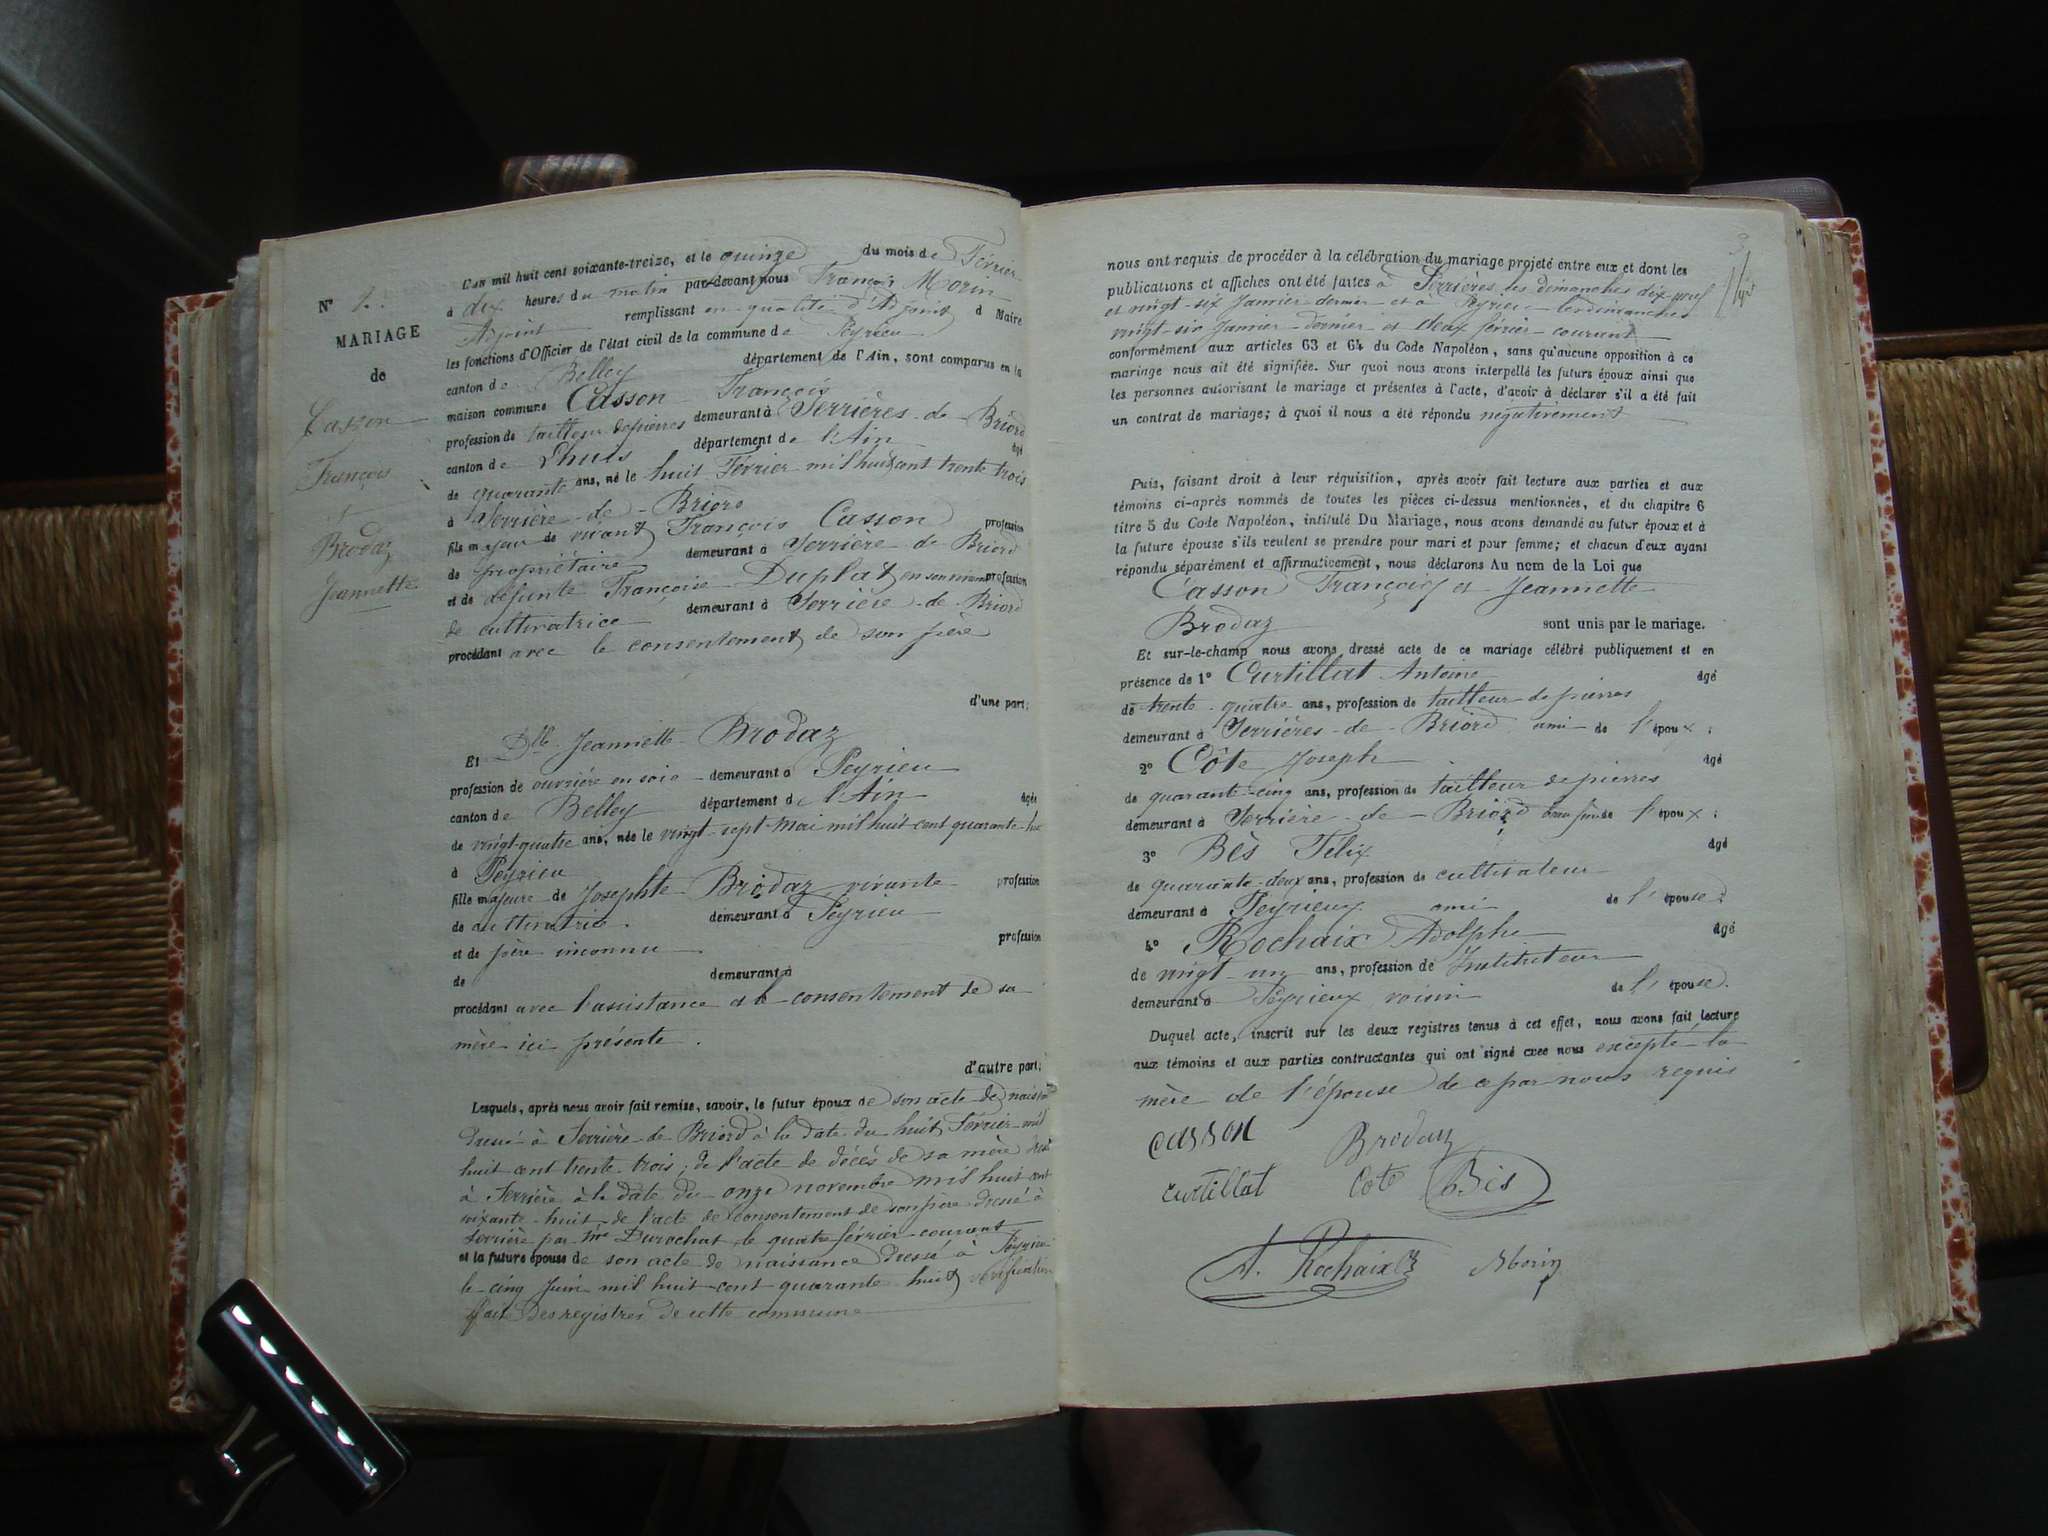 N° 2.
MARIAGE
de
Casson
François
et
Brodaz
Jeannette
L'an mil huit cent soixante-treize, et le quinze du mois de Février
à dix heures du matin par-devant nous François Morin
Adjoint remplissant en qualité d'Adjoint à Maire
les fonctions d'Officier de l'état civil de la commune de Peyrieu
canton de Belley département de l'Ain, sont comparus en la
maison commune Casson François
profession de tailleur de pierres demeurant à Serrières-de-Briord
canton de Lhuis département de l'Ain âgé
de quarante ans, né le huit Février mil huit cent trente trois
à Serrière-de-Briord
fils majeur de vivant François Casson profession
de propriétaire demeurant à Serrière-de-Briord
et de défunte Françoise Duplat en son vivant profession
de cultivatrice demeurant à Serrière-de-Briord
procédant avec le consentement de son père
d'une part;
Et Dlle Jeannette Brodaz
profession de ouvrière en soie demeurant à Peyrieu
canton de Belley département de l'Ain âgée
de vingt-quatre ans, née le vingt-sept Mai mil huit cent quarante-huit
à Peyrieu
fille majeure de Josephte Brodaz vivante profession
de cultivatrice. demeurant à Peyrieu
et de père inconnu profession
de demeurant à
procédant avec l'assistance et le consentement de sa
mère ici présente.
d'autre part;
Lesquels, après nous avoir fait remise, savoir, le futur époux de son acte de naissance
dressé à Serrière-de-Briord à la date du huit Février mil
huit cent trente-trois; de l'acte de décès de sa mère dressé
à Serrière à la date du onze novembre mil huit cent
soixante-huit de l'acte de consentement de son père dressé à
Serrière par Me Durochat le quatre février courant
et la future épouse de son acte de naissance dressé à Peyrieu
le cinq Juin mil huit cent quarante-huit vérification
fait des registres de cette commune
nous ont requis de procéder à la célébration du mariage projeté entre eux et dont les
publications et affiches ont été faites à Serrières les dimanches dix-neuf
et vingt-six Janvier dernier et à Peyrieu les dimanches
vingt-six Janvier dernier et deux février courant
conformément aux articles 63 et 64 du Code Napoléon, sans qu'aucune opposition à ce
mariage nous ait été signifiée. Sur quoi nous avons interpellé les futurs époux ainsi que
les personnes autorisant le mariage et présentes à l'acte, d'avoir à déclarer s'il a été fait
un contrat de mariage; à quoi il nous a été répondu négativement
Puis, faisant droit à leur réquisition, après avoir fait lecture aux parties et aux
témoins ci-après nommés de toutes les pièces ci-dessus mentionnées, et du chapitre 6
titre 5 du Code Napoléon, intitulé Du Mariage, nous avons demandé au futur époux et à
la future épouse s'ils veulent se prendre pour mari et pour femme; et chacun d'eux ayant
répondu séparément et affirmativement, nous déclarons Au nom de la Loi que
Casson François et Jeannette
Brodaz sont unis par le mariage.
Et sur-le-champ nous avons dressé acte de ce mariage célébré publiquement et en
présence de 1° Curtillat Antoine âgé
de trente-quatre ans, profession de tailleur de pierres
demeurant à Serrières-de-Briord ami de l'époux;
2° Côte Joseph âgé
de quarante-cinq ans, profession de tailleur de pierres
demeurant à Serrière-de-Briord beau frère de l'époux;
3° Bès Félix âgé
de quarante-deux ans, profession de cultivateur
demeurant à Peyrieux ami de l'épouse;
4° Rochaix Adolphe âgé
de vingt-un ans, profession de Instituteur
demeurant à Peyrieux voisin de l'épouse.
Duquel acte, inscrit sur les deux registres tenus à cet effet, nous avons fait lecture
aux témoins et aux parties contractantes qui ont signé avec nous excepté la
mère de l'épouse de ce par nous requis
casson Brodaz
curtillat Cote Bès
A. Rochaix Morin